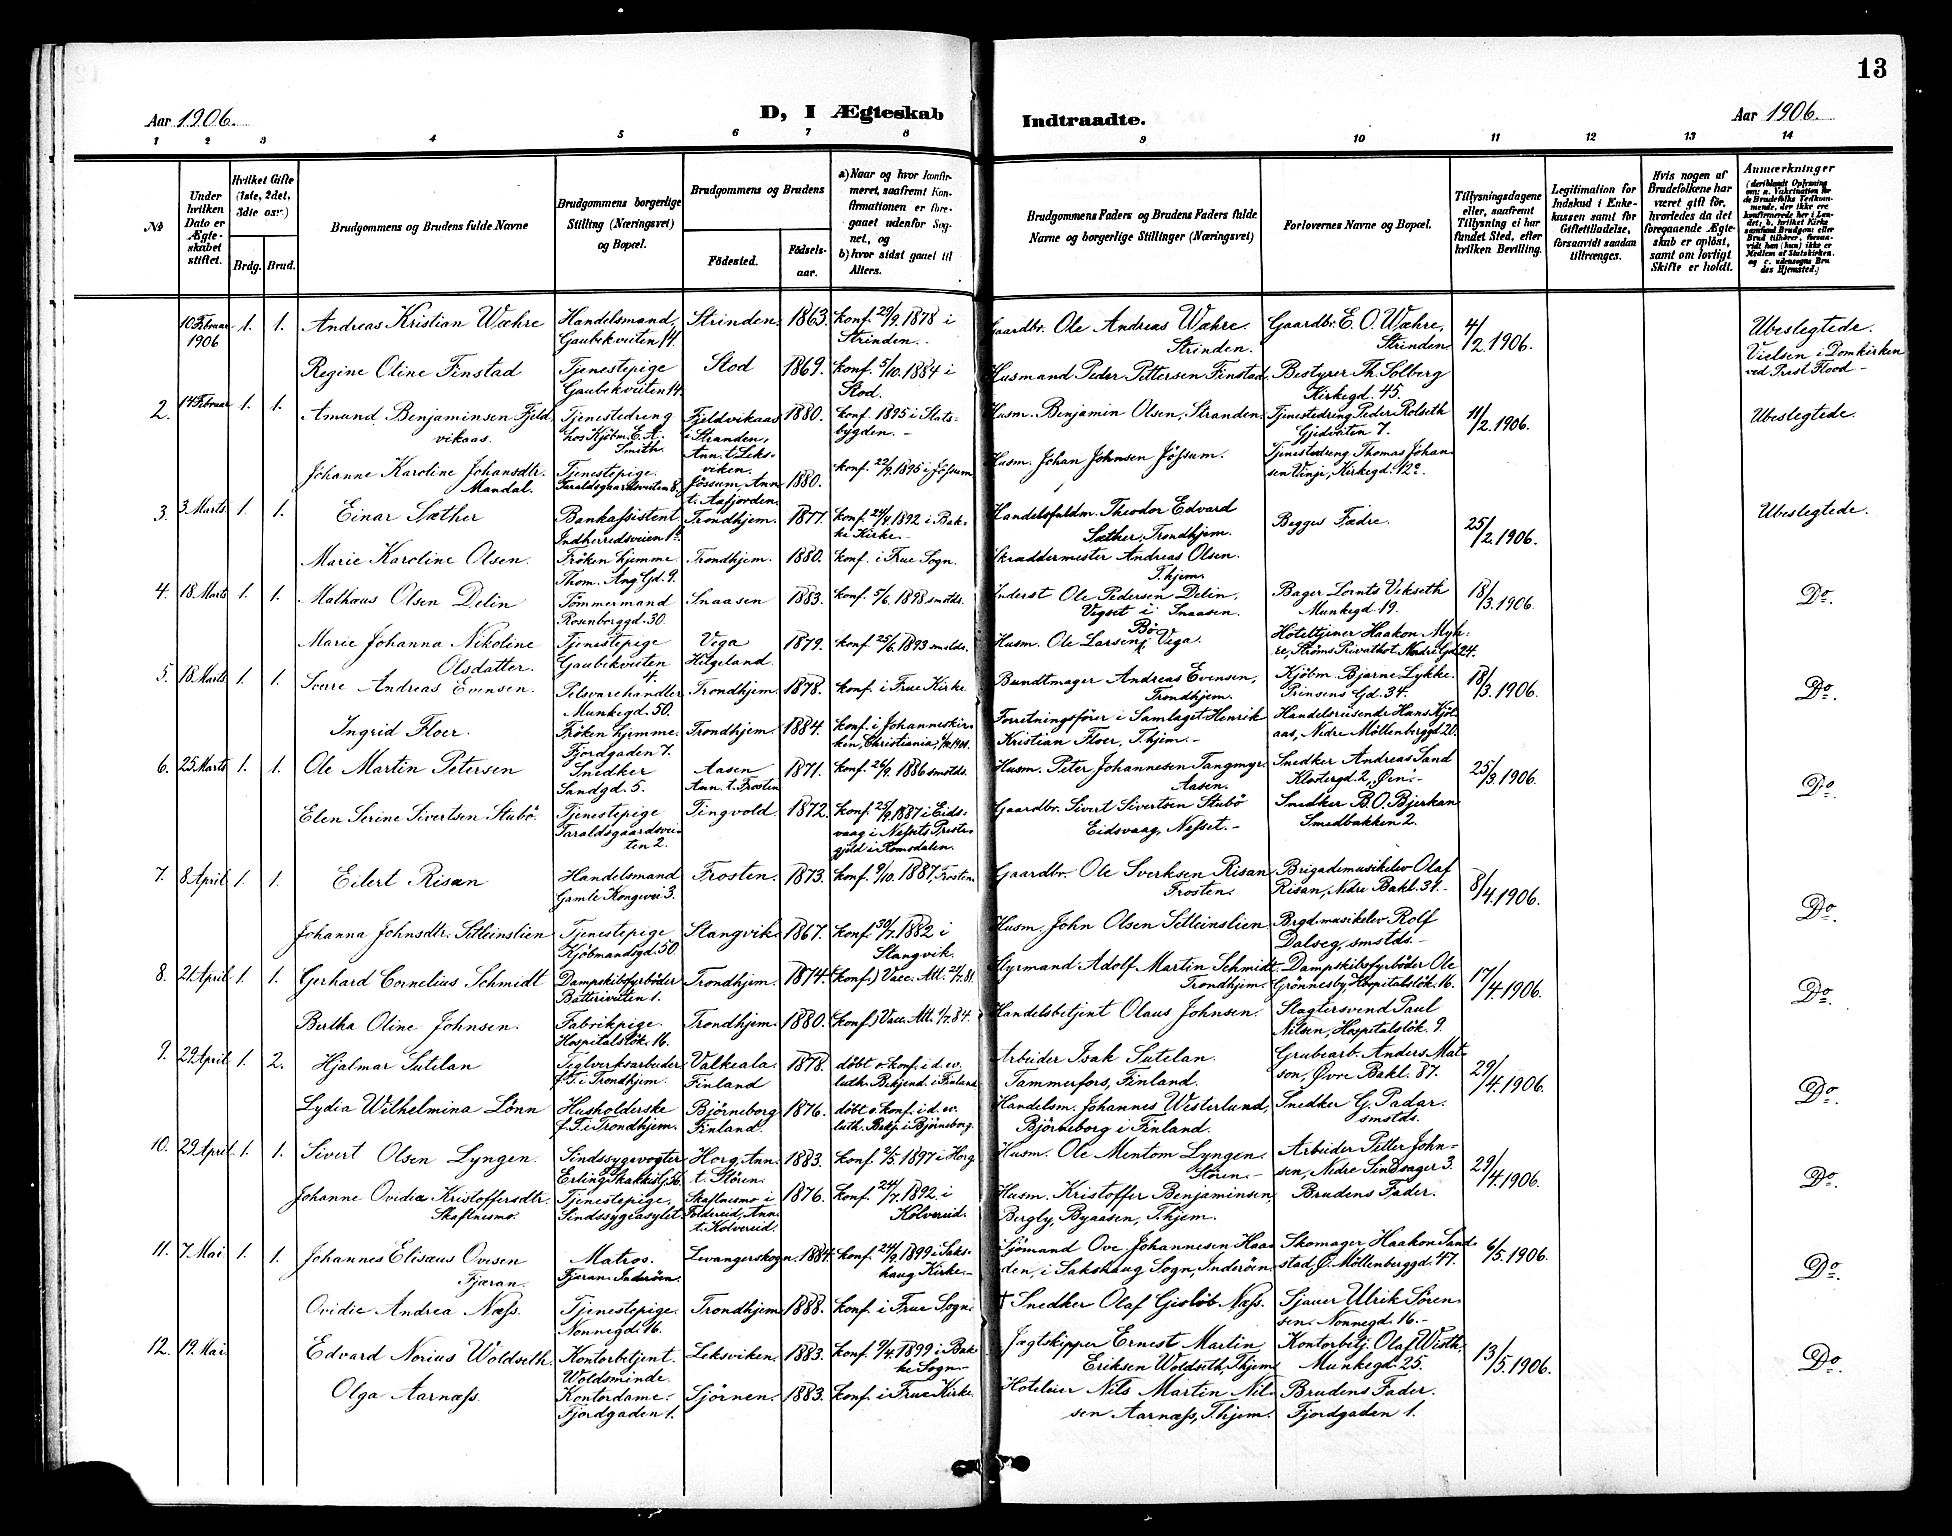 13
Aar 1906. D, I Ægteskab Indtraadte. Aar 1906.
1 2 3 4 5 6 7 8 9 10 11 12 13 14
№
Under hvilken Dato er Ægteskabet stiftet.
Hvilket Gifte (1ste, 2det, 3die osv.)
Brdg. Brud.
Brudgommens og Brudens fulde Navne
Brudgommens borgerlige Stilling (Næringsvei) og Bopæl.
Brudgommens og Brudens
Födested. Födselsaar.
a) Naar og hvor konfirmeret, saafremt Konfirmationen er foregaaet udenfor Sognet, og
b) hvor sidst gaaet til Alters.
Brudgommens Faders og Brudens Faders fulde Navne og borgerlige Stillinger (Næringsvei)
Forlovernes Navne og Bopæl.
Tillysningsdagene eller, saafremt Tillysning ei har fundet Sted, efter hvilken Bevilling.
Legitimation for Indskud i Enkekassen samt for Giftetilladelse, forsaavidt saadan tiltrænges.
Hvis nogen af Brudefolkene har været gift för, hvorledes da det foregaaende Ægteskab er oplöst, samt om lovligt Skifte er holdt.
Anmærkninger
10 Februar 1906 1. 1. Andreas Kristian Wæhre Handelsmand, Gaubekveiten 14. Strinden. 1863. konf. 29/9. 1878 i Strinden. Gaardbr. Ole Andreas Wæhre. Strinden. Gaardbr. E. O. Wæhre, Strinden 4/2. 1906. Ubeslegtede. Vielsen i Domkirken ved Prest Flood –
Regine Oline Finstad Tjenestepige Gaubekveiten 14. Stod 1869. konf. 5/10. 1884 i Stod. Husmand Peder Pettersen Finstad. Bestyrer Th. Solberg Kirkegd. 45.
2. 14 Februar 1. 1. Amund Benjaminsen Fjeldvikaas. Tjenestedreng hos Kjöbm. E. A. Smith. Fjeldvikaas i Stranden, Ann. t. Leksviken. 1880. konf. 1895 i Statsbygden. – Husm. Benjamin Olsen, Stranden. Tjenestedreng Peder Rolseth Gjedveiten 7. 11/2. 1906. Ubeslegtede.
Johanne Karoline Johansdtr. Mandal. Tjenestepige. Taraldsgaardsveiten 8. Jössum, Ann. t. Aafjorden. 1880. konf. 22/9. 1895 i Jössum Husm. Johan Johnsen Jössum. Tjenestedreng Thomas Johansen Vinje, Kirkegd. 12ᵃ.
3. 3. Marts 1. 1. Einar Sæther Bankassistent Indherredsveien 1ᵃ. Trondhjem. 1877. konf. 24/4. 1892 i Bakke Kirke. – Handelsfuldm. Theodor Edvard Sæther, Trondhjem. Begges Fædre. 25/2. 1906. Ubeslegtede.
Marie Karoline Olsen. Fröken hjemme Thom. Ang. Gd. 9. Trondhjem. 1880. konf. i Frue Sogn. Skræddermester Andreas Olsen. T.hjem.
4. 18. Marts 1. 1. Mathæus Olsen Delin Tömmermand Rosenborggd. 30. Snaasen 1883. konf. 5/6. 1898 smstds. Inderst Ole Pedersen Delin, Vegset i Snaasen. Bager Lornts Vekseth Munkegd. 19. 18/3. 1906. Do.
Marie Johanna Nikoline Olsdatter. Tjenestepige Gaubekveiten 4. Vega Helgeland. 1879. konf. 25/6. 1893 smstds. Husm. Ole Larsen, Bö Vega. Hoteltjener Haakon Myhre, Ströms Privathot. Nordre Gd. 24.
5. 18. Marts 1. 1. Sverre Andreas Evensen. Pelsvarehandler Munkegd. 50. Trondhjem. 1878. konf. i Frue Kirke Bundtmager Andreas Evensen, Trondhjem. Kjöbm. Bjarne Lykke. Prinsens Gd. 34. 18/3. 1906. Do.
Ingrid Floer. Fröken hjemme. Fjordgaden 7. Trondhjem. 1884. konf. i Johanneskirken, Christiania, Forretningsförer i Samlaget Henrik Kristian Floer, T.hjem. – Handelsreisende Hans Kjölaas, Nedre Möllenberggd. 20.
6. 25. Marts 1. 1. Ole Martin Petersen Snedker Sandgd. 5. Aasen Ann. t. Frosten 1871. konf. 26/9. 1886 smstds. Husm. Peter Johannesen Tangmyr. Aasen. Snedker Andreas Sand Klostergd. 2, Øen. – 25/3. 1906. Do.
Elen Serine Sivertsen Stubö. Tjenestepige Taraldsgaardsveiten 2. Tingvold. 1872. konf. 25/9. 1887 i Eidsvaag i Nessets Prestegjeld i Romsdalen. Gaardbr. Sivert Sivertsen Stubö Eidsvaag, Nesset. – Snedker B. O. Bjerkan Smedbakken 2.
7. 8. April 1. 1. Eilert Risan Handelsmand Gamle Kongevei 3. Frosten. 1873. konf. 9/10. 1887, Frosten. Gaardbr. Ole Sverksen Risan Frosten. Brigademusikelev Olaf Risan, Nedre Bakl. 31. – 8/4. 1906. Do.
Johanna Johnsdtr. Setleinslien Tjenestepige Kjöbmandsgd. 50 Stangvik. 1867. konf. 30/7. 1882 i Stangvik. Husm. John Olsen Setleinslien Brgd. musikelev Rolf Dalseg, smstds. –
8. 21. April 1. 1. Gerhard Cornelius Schmidt Dampskibsfyrböder Batteriveiten 1. Trondhjem. 1874. (konf.) Vacc. Att. 2/7. 81. Styrmand Adolf Martin Schmidt. Trondhjem. Dampskibsfyrböder Ole Grönnesby, Hospitalslök. 16. 17/4. 1906. Do.
Bertha Oline Johnsen. Fabrikpige. Hospitalslök. 16. Trondhjem. 1880. (konf.) Vacc. Att. 1/7. 84. Handelsbetjent Olaus Johnsen. Slagtersvend Paul Nilsen, Hospitalslök. 9.
9. 29 April 1. 2. Hjalmar Sutelan Teglverksarbeider f. T. i Trondhjem. Valkeala. Finland 1878. döbt o. konf. i d. ev. luth. Bekjend. i Finland Arbeider Isak Sutelan. Tammerfors, Finland. Grubearb. Anders Matson, Øvre Bakl. 87. 29/4. 1906. Do.
Lydia Wilhelmina Lönn Husholderske f. T. i Trondhjem. Björneborg Finland. 1876. döbt o. konf. i d. ev. luth. Bekj. i Björneborg. Handelsm. Johannes Westerlund, Björneborg i Finland. Snedker G. Padar. smstds.
10. 29. April. 1. 1. Sivert Olsen Lyngen. Sindssygevogter Erling Skakkes Horg, Ann. t. Stören. 1883. konf. 2/5. 1897 i Horg Husm. Ole Mentom Lyngen. Stören. – Arbeider Petter Johnsen, Nedre Sindsager 3. 29/4. 1906. Do.
Johanne Ovidia Kristoffersdtr. Skaflnesmo. Tjenestepige, Sindssygeasylet. Skaflnesmo i Foldereid, Ann. t. Kolvereid. 1876. konf. 24/7. 1892 i Kolvereid. Husm. Kristoffer Benjaminsen, Bergly, Byaasen, T.hjem. Brudens Fader.
11. 7. Mai 1. 1. Johannes Elisæus Ovesen Fjæran. Matros. Fjæran. Inderöen. Levangerskogn. 1884. konf. 24/9. 1899 i Sakshaug Kirke. – Sjömand Ove Johannesen Haaden, i Sakshaug Sogn, Inderöen Skomager Haakon Sandstad Ø. Möllenberggd. 47. 6/5. 1906. Do.
Ovidie Andrea Næss. Tjenestepige. Nonnegd. 16. Trondhjem 1888. konf. i Frue Sogn. † Snedker Olaf Gislöb Næss. Sjauer Ulrik Sörensen. Nonnegd. 16. –
12. 19. Mai Edvard Norius Woldseth. Kontorbetjent. Woldsminde. Leksviken. 1883. konf. 9/4. 1899 i Bakke Sogn – Jægtskipper Ernest Martin Eriksen Woldseth, T.hjem Kontorbetj. Olaf Wisth, Munkegd. 25. 13/5. 1906. Do.
Olga Aarnæss. Kontordame. Fjordgaden 1. Sjörnen. 1883. konf. i Frue Kirke. Hoteleier Nils Martin Nilsen Aarnæss, T.hjem. Brudens Fader. Fjordgaden 1.